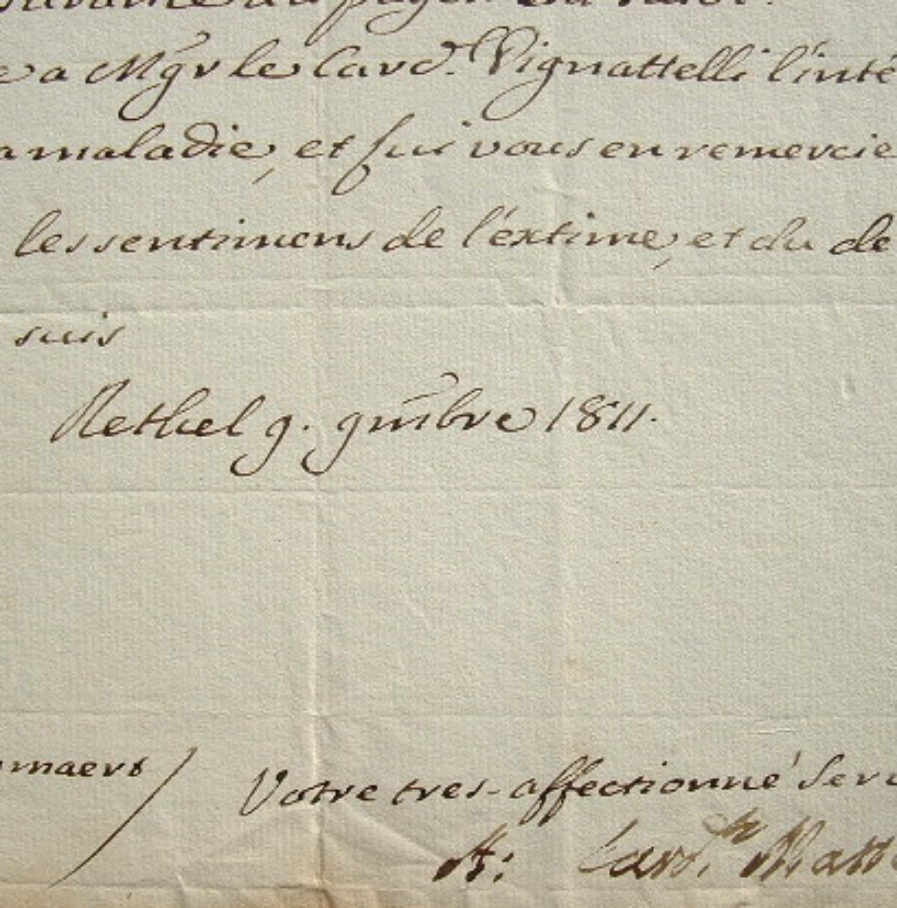 e a Mgr le Card. Vignattelli l'inté
a maladie, et fui vous en remercie
les sentimens de l'extime, et du de
suis
Rethel 9. 9mbre 1811.
maers / Votre tres-affectionné Serv
A: Card. Matt